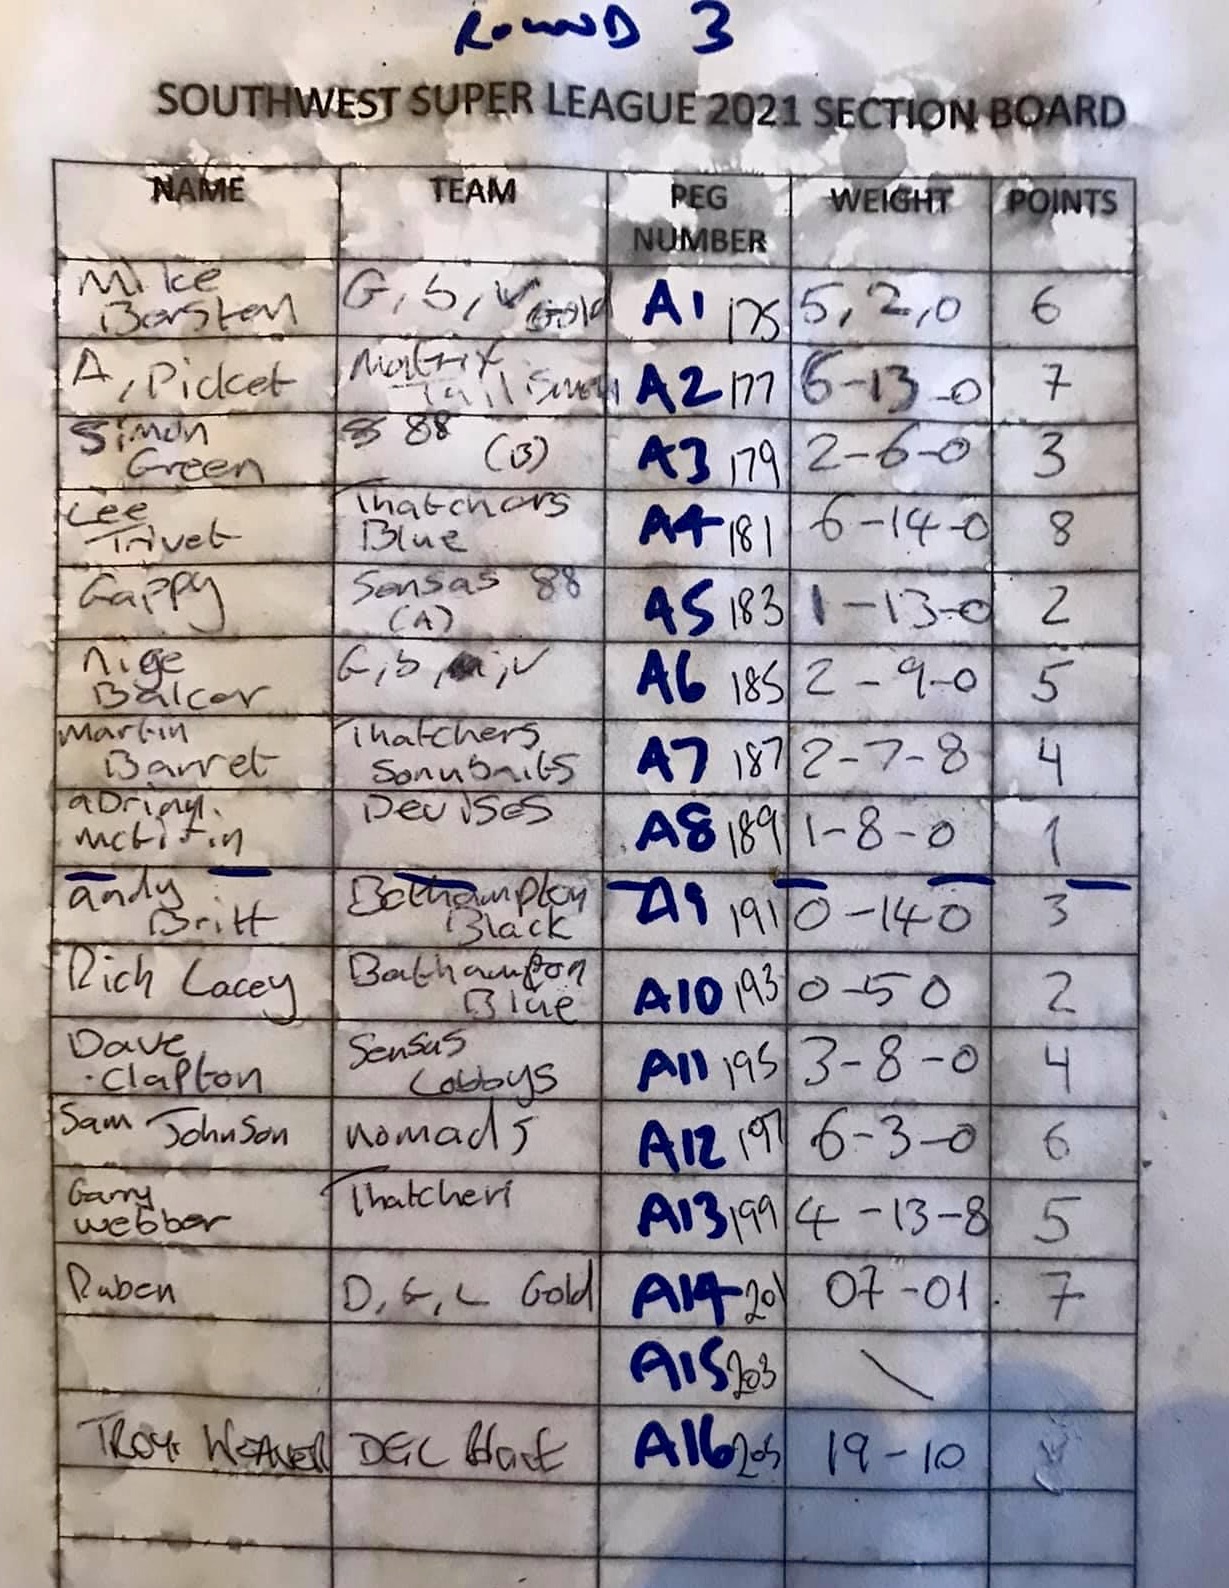 Round 3
SOUTHWEST SUPER LEAGUE 2021 SECTION BOARD
NAME TEAM PEG NUMBER WEIGHT POINTS
Mike Borsten G, b, v Gold A1 175 5,2,0 6
A, Picket Matrix A2 177 6-13-0 7
Simon Green 88 (B) A3 179 2-6-0 3
Lee Trivet Thatchors Blue A4 181 6-14-0 8
Gappy Sensas 88 (A) A5 183 1-13-0 2
Nige Balcor G, b, , v A6 185 2-9-0 5
Martin Barret Thatchers Sonubaits A7 187 2-7-8 4
aDrian. Devises A8 189 1-8-0 1
andy Britt Bathampton Black A9 191 0-14 0 3
Rich Lacey Bathampton Blue A10 193 0-5 0 2
Dave Clapton Sensas Lobbys A11 195 3-8-0 4
Sam Johnson Nomads A12 197 6-3-0 6
Garry Webber Thatchers A13 199 4-13-8 5
Ruben D, G, L Gold A14 201 07-01. 7
A15 203 \
TROY WEAVER DGL A16 205 19-10